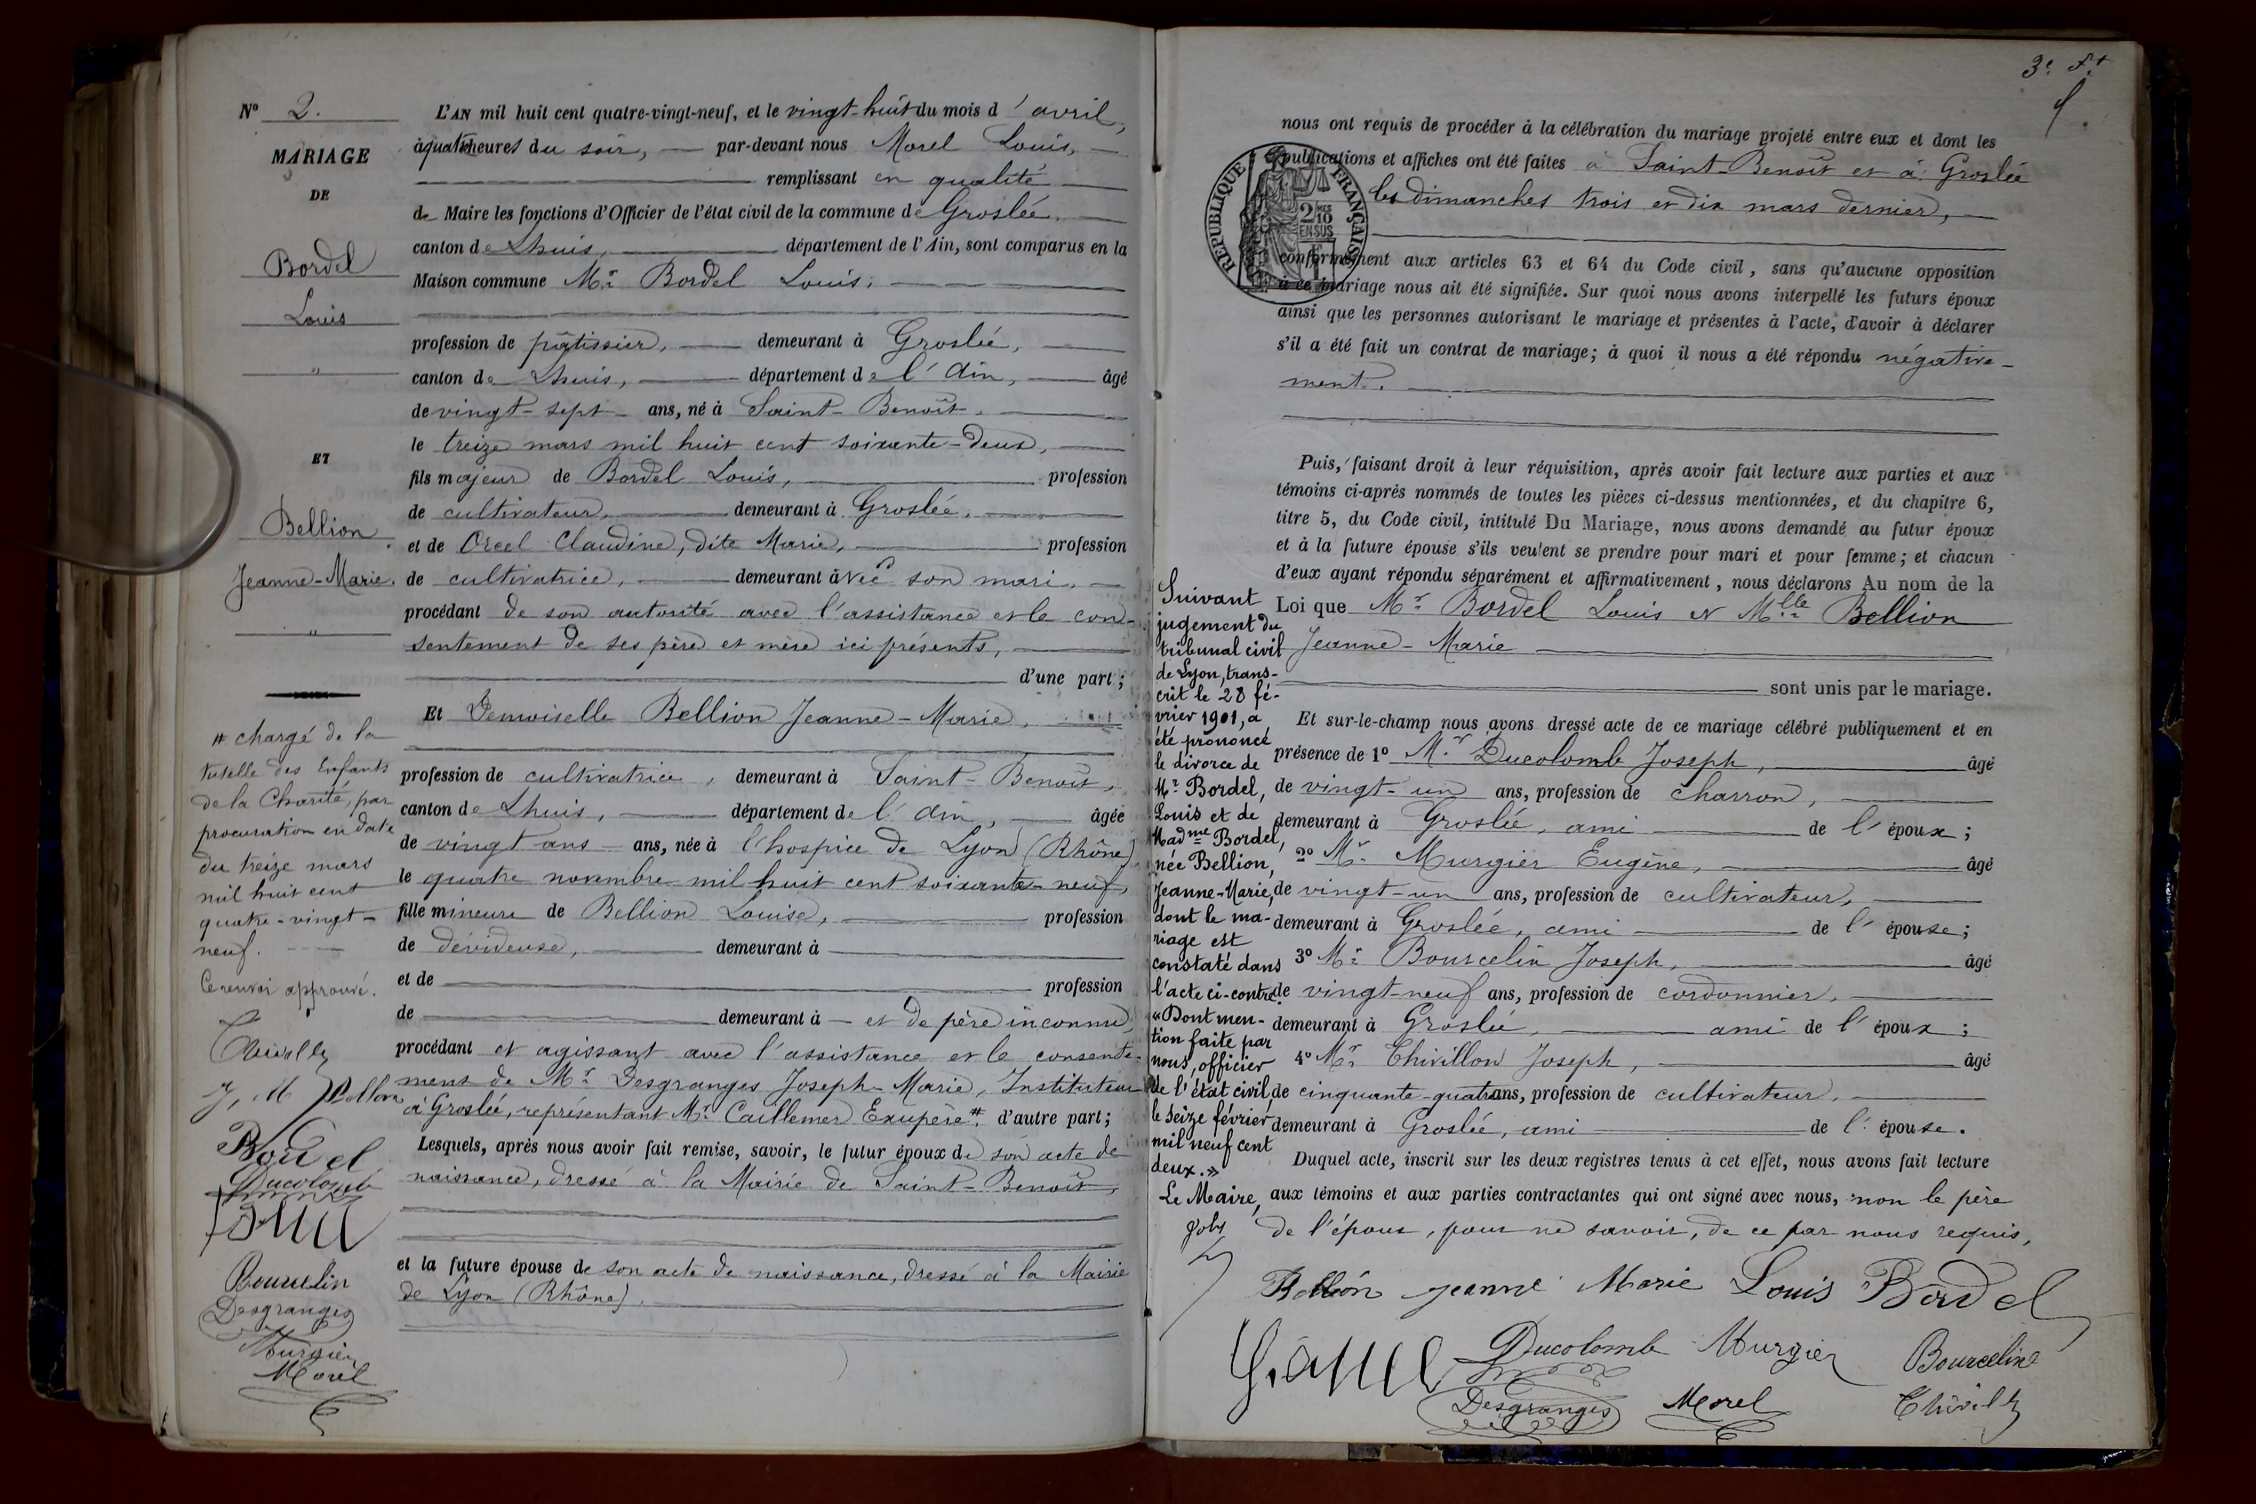 N° 2.
MARIAGE
DE
Bordel
Louis
"
ET
Bellion
Jeanne-Marie.
"
# chargé de la
tutelle des Enfants
de la Charité, par
procuration en date
du treize mars
mil huit cent
quatre-vingt-
neuf.
Ce renvoi approuvé.
J. M Bellion
Bordel
Ducolomb
Bourcelin
Desgranges
Murgier
Morel
L'AN mil huit cent quatre-vingt-neuf, et le vingt-huit du mois d'avril,
à quatre heures du soir, par-devant nous Morel Louis,
remplissant en qualité
de Maire les fonctions d'Officier de l'état civil de la commune de Groslée,
canton de Lhuis, département de l'Ain, sont comparus en la
Maison commune Mr. Bordel Louis,
profession de pâtissier, demeurant à Groslée,
canton de Lhuis, département de l'Ain, âgé
de vingt-sept ans, né à Saint-Benoît,
le treize mars mil huit cent soixante-deux,
fils majeur de Bordel Louis, profession
de cultivateur, demeurant à Groslée,
et de Orcel Claudine, dite Marie, profession
de cultivatrice, demeurant avec son mari,
procédant de son autorité avec l'assistance et le con-
sentement de ses père et mère ici présents,
d'une part;
Et Demoiselle Bellion Jeanne-Marie,
profession de cultivatrice, demeurant à Saint-Benoît,
canton de Lhuis, département de l'Ain, âgée
de vingt ans ans, née à l'hospice de Lyon (Rhône)
le quatre novembre mil huit cent soixante-neuf,
fille mineure de Bellion Louise, profession
de dévideuse, demeurant à
et de profession
de demeurant à et de père inconnu,
procédant et agissant avec l'assistance et le consente-
ment de Mr. Desgranges Joseph-Marie, Instituteur
à Groslée, représentant Mr. Caillemer Exupère # d'autre part;
Lesquels, après nous avoir fait remise, savoir, le futur époux de son acte de
naissance, dressé à la Mairie de Saint-Benoît,
et la future épouse de son acte de naissance, dressé à la Mairie
de Lyon (Rhône).
3e. ft
nous ont requis de procéder à la célébration du mariage projeté entre eux et dont les
publications et affiches ont été faites à Saint-Benoît et à Groslée
les dimanches trois et dix mars dernier,
RÉPUBLIQUE FRANÇAISE
2/10 EN SUS
conformément aux articles 63 et 64 du Code civil, sans qu'aucune opposition
à ce mariage nous ait été signifiée. Sur quoi nous avons interpellé les futurs époux
ainsi que les personnes autorisant le mariage et présentes à l'acte, d'avoir à déclarer
s'il a été fait un contrat de mariage; à quoi il nous a été répondu négative-
ment.
Puis, faisant droit à leur réquisition, après avoir fait lecture aux parties et aux
témoins ci-après nommés de toutes les pièces ci-dessus mentionnées, et du chapitre 6,
titre 5, du Code civil, intitulé Du Mariage, nous avons demandé au futur époux
et à la future épouse s'ils veulent se prendre pour mari et pour femme; et chacun
d'eux ayant répondu séparément et affirmativement, nous déclarons Au nom de la
Loi que Mr. Bordel Louis et Mlle Bellion
Jeanne-Marie
sont unis par le mariage.
Et sur-le-champ nous avons dressé acte de ce mariage célébré publiquement et en
présence de 1° Mr. Ducolomb Joseph, âgé
de vingt-un ans, profession de charron,
demeurant à Groslée, ami de l'époux;
2° Mr. Murgier Eugène, âgé
de vingt-un ans, profession de cultivateur,
demeurant à Groslée, ami de l'épouse;
3° Mr. Bourcelin Joseph, âgé
de vingt-neuf ans, profession de cordonnier,
demeurant à Groslée, ami de l'époux;
4° Mr. Thivillon Joseph, âgé
de cinquante-quatre ans, profession de cultivateur,
demeurant à Groslée, ami de l'épouse.
Duquel acte, inscrit sur les deux registres tenus à cet effet, nous avons fait lecture
aux témoins et aux parties contractantes qui ont signé avec nous, non le père
de l'époux, pour ne savoir, de ce par nous requis,
Suivant
jugement du
tribunal civil
de Lyon, trans-
crit le 28 fé-
vrier 1901, a
été prononcé
le divorce de
Mr Bordel,
Louis et de
Madme Bordel,
née Bellion,
Jeanne-Marie,
dont le ma-
riage est
constaté dans
l'acte ci-contre.
"Dont men-
tion faite par
nous, officier
de l'état civil
le seize février
mil neuf cent
deux."
Le Maire,
Bellion Jeanne Marie Louis Bordel
Ducolomb Murgier Bourcelin
Desgranges Morel